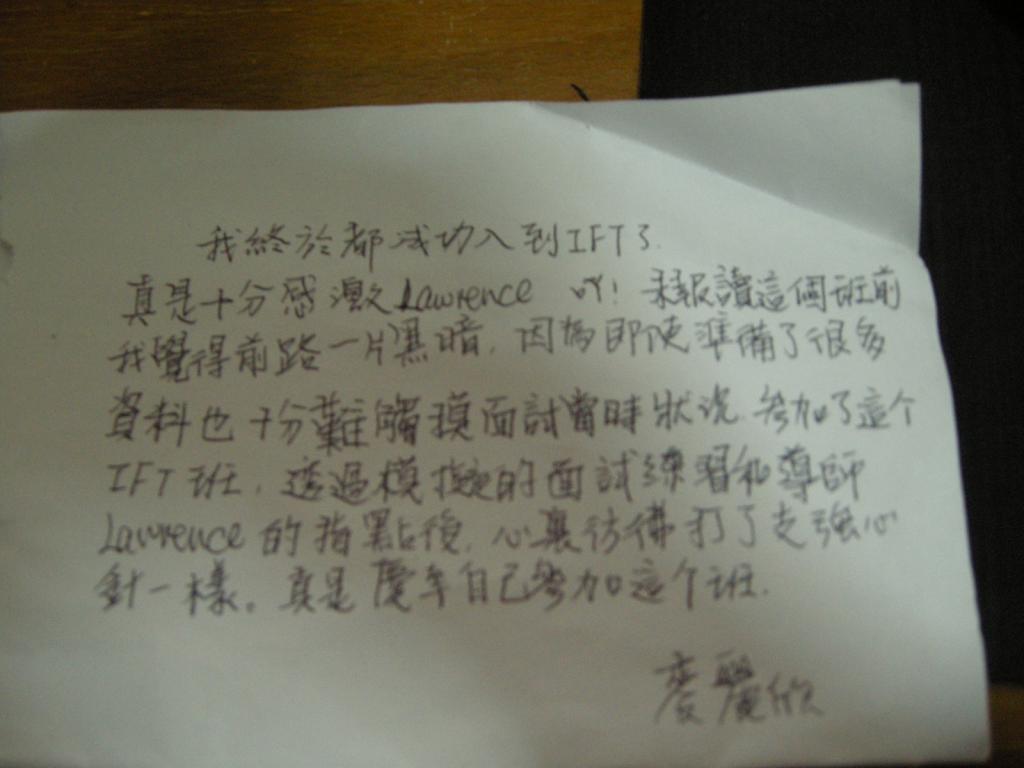 我終於都成功入到IFT了.
真是十分感激Lawrence 吖! 未報讀這個班前
我覺得前路一片黑暗, 因為即使準備了很多
資料也十分難觸摸面試當時狀況. 參加了這个
IFT班, 透過模擬的面試練習和導師
Lawrence的指點後, 心裏彷彿打了支強心
針一樣。真是慶幸自己參加這个班.
麥麗欣